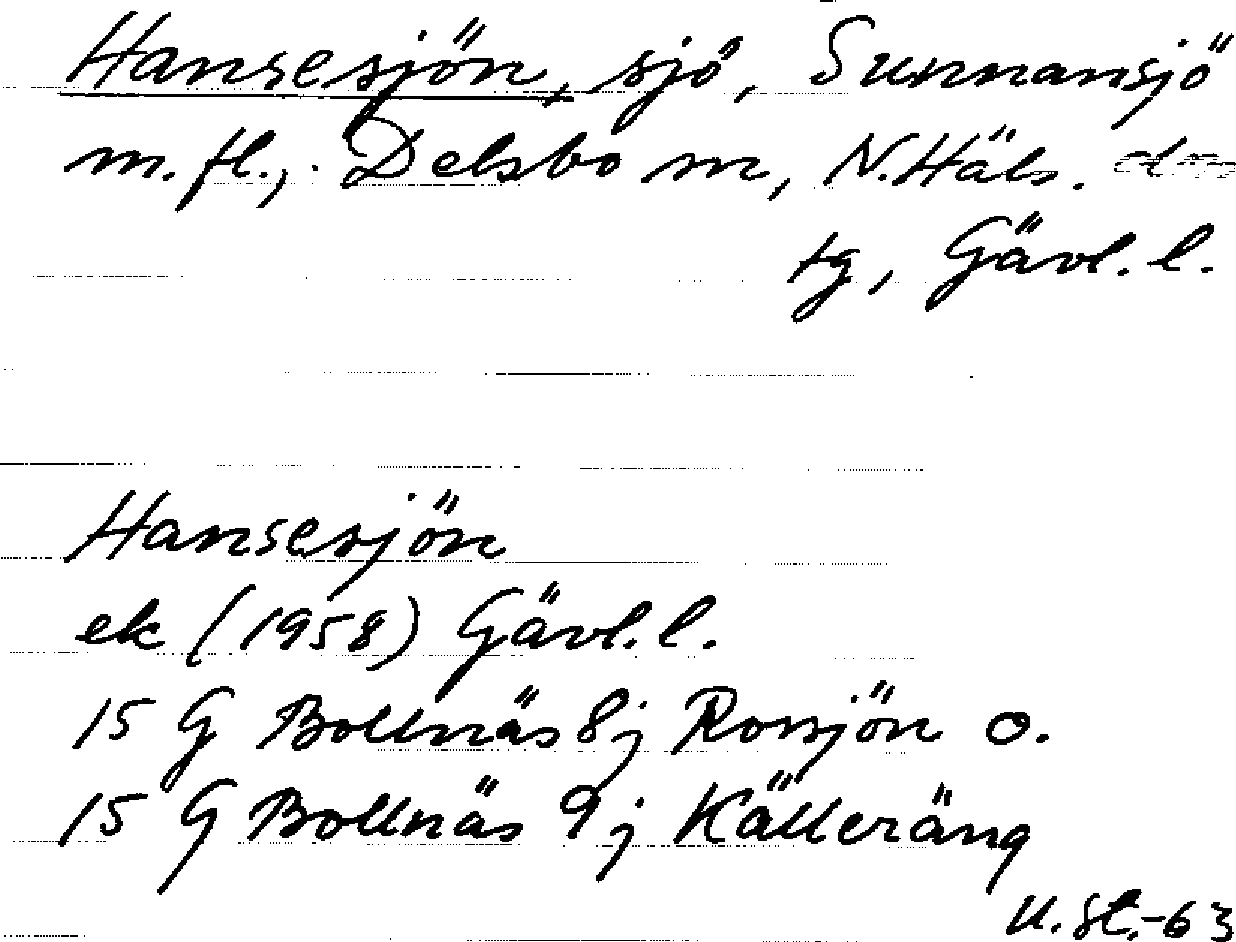 Hansesjön, sjö, Sunnansjö
m.fl., Delsbo sn, N.Häls.
tg, Gävl.l.
Hansesjön
ek (1958) Gävl.l.
15 G Bollnäs 8j Rossjön o.
15 G Bollnäs 9j Källeräng
U.St.-63